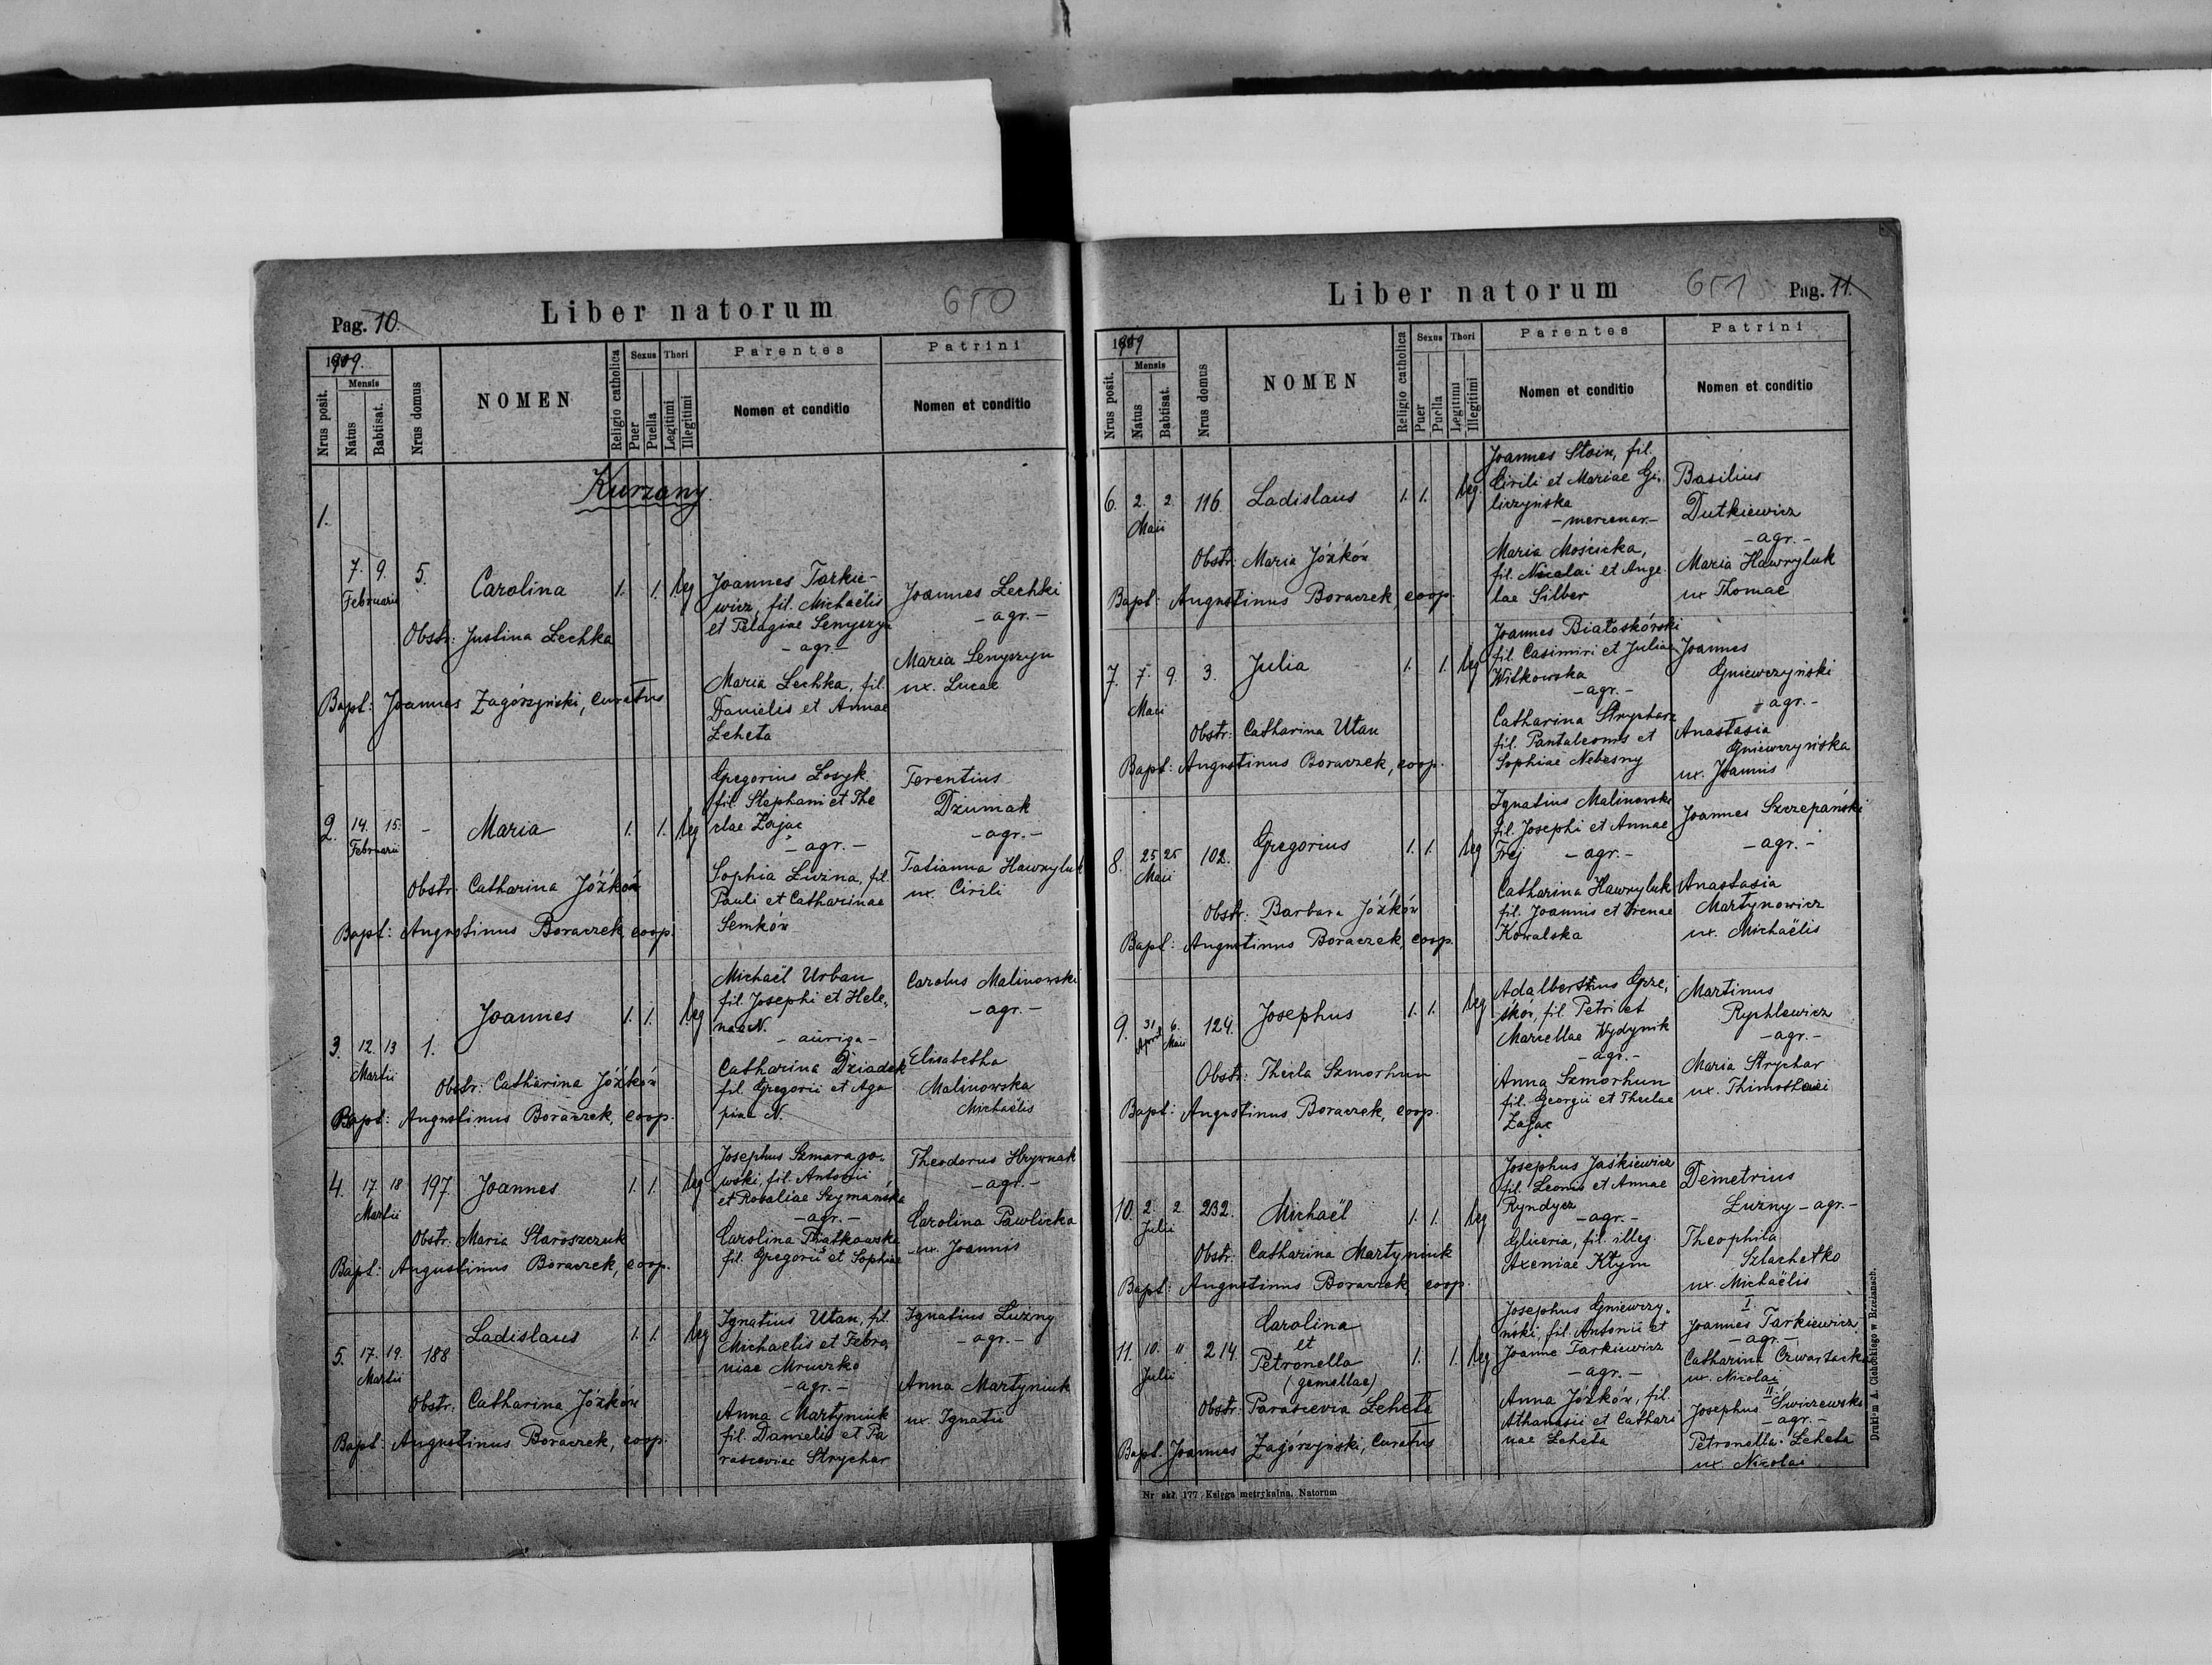 Pag. 10.
Liber natorum
650
1909.
Nrus posit.
Mensis
Natus
Babtisat.
Nrus domus
NOMEN
Religio catholica
Sexus
Puer
Puella
Thori
Legitimi
Illegitimi
Parentes
Nomen et conditio
Patrini
Nomen et conditio
Kurzany
1.
7. 9.
Februarii
5.
Carolina
1. 1. leg
Obstr: Justina Lechka
Bapt: Joannes Zagórzyński, curatus
Joannes Tarkie-
wicz, fil. Michaëlis
et Pelagiae Senyszyn
- agr -
Maria Lechka, fil.
Danielis et Annae
Leheta
Joannes Lechki
- agr. -
Maria Senyszyn
ux. Lucae
2.
14. 15.
Februarii
-
Maria
1. 1. leg
Obstr: Catharina Józków
Bapt: Augustinus Boraczek, coop.
Gregorius Łosyk
fil. Stephani et The
clae Zając
- agr. -
Sophia Luzina, fil.
Pauli et Catharinae
Semków
Terentius
Dziumak
- agr. -
Tatianna Hawryluk
ux. Cirili
3.
12. 13
Martii
1.
Joannes
1. 1. leg
Obstr: Catharina Józków
Bapt: Augustinus Boraczek, coop.
Michaël Urban
fil. Josephi et Hele,
nae N.
- auriga -
Catharina Dziadek
fil. Gregorii et Aga
piae N.
Carolus Malinowski
- agr. -
Elisabetha
Malinowska
Michaëlis
4.
17. 18
Martii
197.
Joannes
1. 1. leg
Obstr. Maria Staroszczuk
Bapt: Augustinus Boraczek, coop.
Josephus Szmarago-
wski, fil. Antonii
et Rosaliae Szymańska
- agr. -
Carolina Piatkowska
fil. Gregorii et Sophiae
Theodorus Hrywnak
- agr. -
Carolina Pawlicka
ux. Joannis
5.
17. 19.
Martii
188
Ladislaus
1. 1. leg
Obstr. Catharina Józków
Bapt: Augustinus Boraczek, coop.
Ignatius Utan, fil.
Michaelis et Febro,
niae Mruczko
- agr. -
Anna Martyniuk
fil. Danielis et Pa
rasceviae Strychar
Ignatius Luzny
- agr. -
Anna Martyniuk
ux. Ignatii
Liber natorum
651
Pag. 11.
1909
Nrus posit.
Mensis
Natus
Babtisat.
Nrus domus
NOMEN
Religio catholica
Sexus
Puer
Puella
Thori
Legitimi
Illegitimi
Parentes
Nomen et conditio
Patrini
Nomen et conditio
6.
2. 2.
Maii
116
Ladislaus
1. 1. leg.
Obstr: Maria Józków
Bapt: Augustinus Boraczek, coop.
Joannes Stoin, fil.
Cirili et Mariae Gi,
liczyńska
- mercenar. -
Maria Mościcka,
fil. Nicolai et Ange
lae Silber
Basilius
Dutkiewicz
- agr. -
Maria Hawryluk
ux Thomae
7.
7. 9.
Maii
3.
Julia
1. 1. leg
Obstr: Catharina Utan
Bapt: Augustinus Boraczek, coop.
Joannes Białoskórski
fil. Casimiri et Juliae
Witkowska
- agr. -
Catharina Strychar
fil. Pantaleonis et
Sophiae Nebesny
Joannes
Gniewczyński
- agr. -
Anastasia
Gniewczyńska
ux. Joannis
8.
25 25
Maii
102.
Gregorius
1. 1. leg
Obstr: Barbara Józków
Bapt: Augustinus Boraczek, coop.
Ignatius Malinowski
fil. Josephi et Annae
Frej - agr. -
Catharina Hawryluk
fil. Joannis et Irenae
Kowalska
Joannes Szczepański
- agr. -
Anastasia
Martynowicz
ux. Michaëlis
9.
31 6.
April Maii
124.
Josephus
1. 1. leg
Obstr: Thecla Szmorhun
Bapt: Augustinus Boraczek, coop.
Adalbertus Grze,
śków, fil. Petri et
Marcellae Wydynik
- agr. -
Anna Szmorhun
fil. Georgii et Theclae
Zając
Martinus
Rychlewicz
- agr. -
Maria Strychar
ux. Thimothaei
10.
2. 2
Julii
232.
Michaël
1. 1. leg
Obstr: Catharina Martyniuk
Bapt: Augustinus Boraczek, coop.
Josephus Jaśkiewicz
fil. Leonis et Annae
Ryndycz
- agr. -
Gliceria, fil. illeg.
Axeniae Kłym
Demetrius
Luzny - agr. -
Theophila
Szlachetko
ux. Michaëlis
11.
10. 11.
Julii
214.
Carolina
et
Petronella
(gemellae)
1. 1. leg
Obstr: Parascevia Leheta
Bapt. Joannes Zagórzyński, Curatus
Josephus Gniewczy-
ński, fil. Antonii et
Joanne Tarkiewicz
- agr. -
Anna Józków, fil.
Athanasii et Cathari
nae Leheta
I.
Joannes Tarkiewicz
- agr. -
Catharina Czwartacka
ux. Nicolai
II.
Josephus Świczewski
- agr. -
Petronella Leheta
ux. Nicolai
Nr skł. 177. Księga metrykalna. Natorum
Drukiem A. Cichockiego w Brzeżanach.